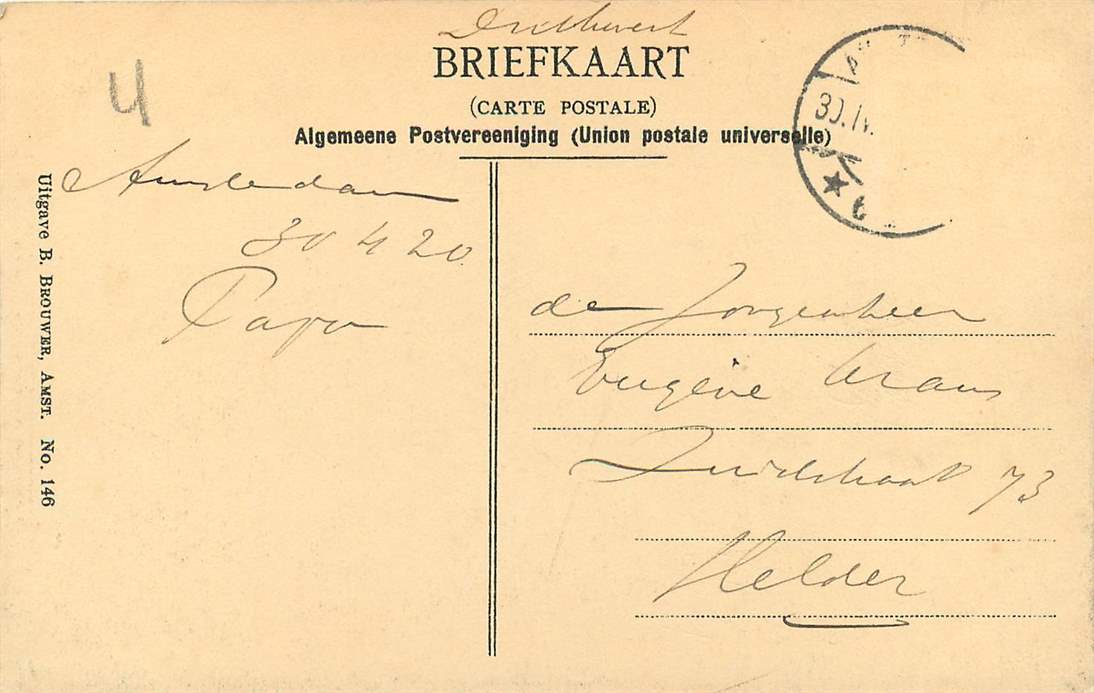 Drukwerk
BRIEFKAART
(CARTE POSTALE)
Algemeene Postvereeniging (Union postale universelle)
4
30.IV.
6
Amsterdam
30 4 20
Papa
de Jongenheer
Eugène
Zuidstraat 73
Helder
Uitgave B. BROUWER, AMST. No. 146